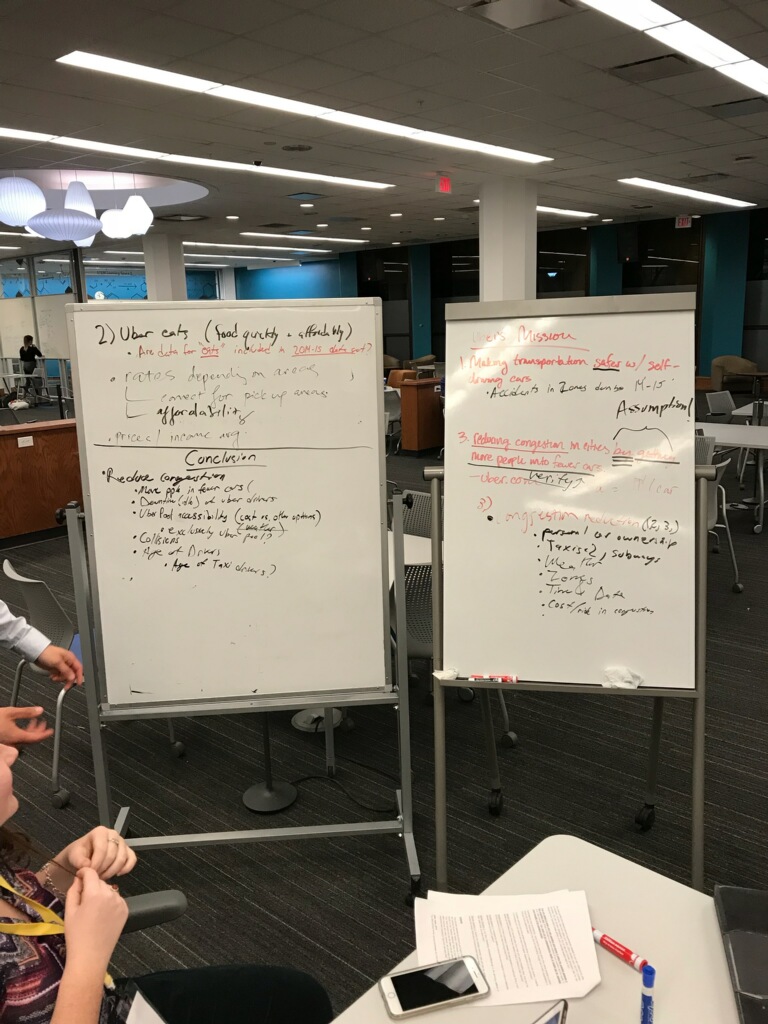 2) Uber eats (food quickly + affordably)
• Are data for "eats" included in 2014-15 data set?
• rates depending on areas
connect for pick up areas
affordability
• price / income avg
Conclusion
• Reduce congestion
• More ppl in fewer cars
• Downtime (idle) of uber drivers
• Uber Pool accessibility (cost vs. other options)
• exclusively uber pool?
• Collisions
• Age of Drivers
• Age of Taxi drivers?
Uber's Mission
1. Making transportation safer w/ self-
driving cars
• Accidents in Zones during 14-15
Assumption!
3. reducing congestion in cities by getting
more people into fewer cars
- Uber.com
Verify
3)
• Congestion reduction (2, 3,)
• personal car ownership
• Taxis, subways
• Weather
• Zones
• Time & Date
• Cost/ in congestion